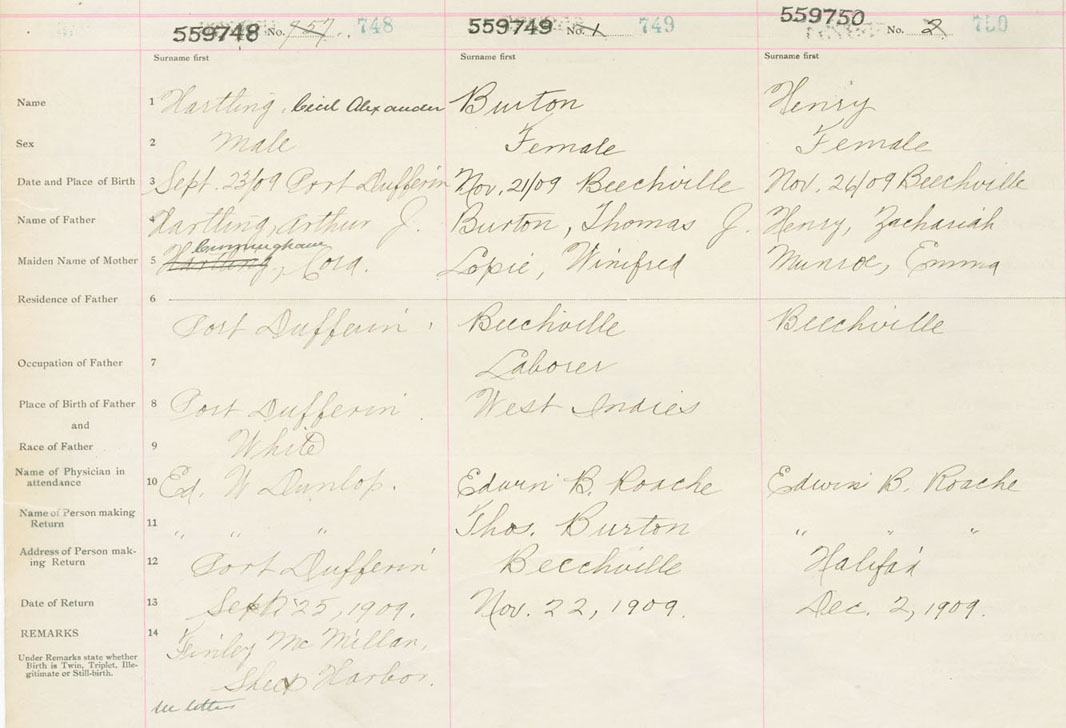 559748 No. 957 748 559749 No. 1 749 559750 No. 2 750
Surname first Surname first Surname first
Name 1 Hartling, Cecil Alexander Burton Henry
Sex 2 Male Female Female
Date and Place of Birth 3 Sept. 23/09 Port Dufferin Nov. 21/09 Beechville Nov. 26/09 Beechville
Name of Father 4 Hartling, Arthur J. Burton, Thomas J. Henry, Zachariah
Cunningham
Maiden Name of Mother 5 Hartling, Cora. Lopie, Winifred Munroe, Emma
Residence of Father 6
Port Dufferin Beechville Beechville
Occupation of Father 7 Laborer
Place of Birth of Father 8 Port Dufferin. West Indies
and
Race of Father 9 White
Name of Physician in
attendance 10 Ed. W Dunlop. Edwin B. Roache Edwin B. Roache
Name of Person making
Return 11 " " " Thos. Burton " " "
Address of Person mak-
ing Return 12 Port Dufferin Beechville Halifax
Date of Return 13 Sept 25, 1909. Nov. 22, 1909 Dec. 2, 1909.
REMARKS 14 Finley McMillan,
Under Remarks state whether
Birth is Twin, Triplet, Ille-
gitimate or Still-birth.
Sheet Harbor.
see letter